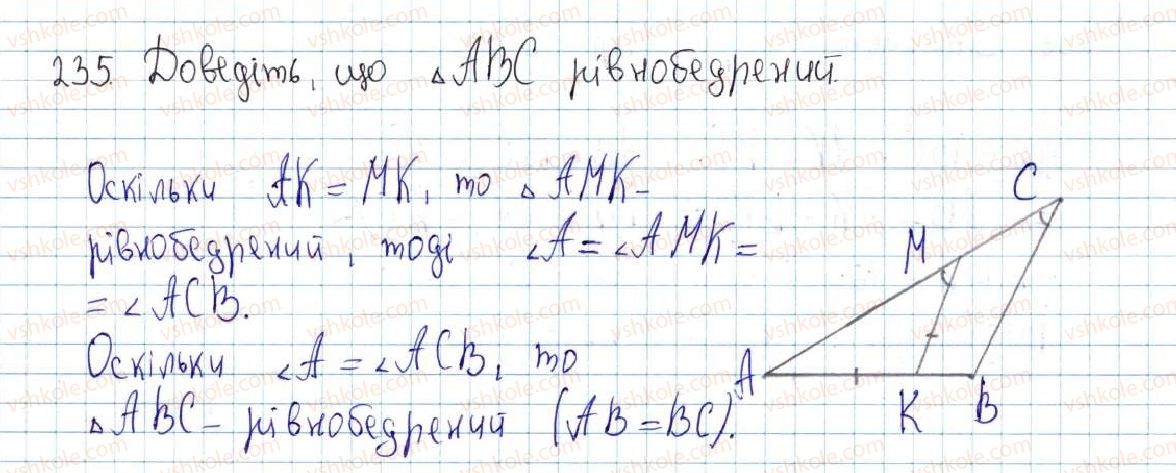 235. Доведіть, що △ABC рівнобедрений.
Оскільки AK = MK, то △AMK –
рівнобедрений, тоді ∠A = ∠AMK =
= ∠ACB.
Оскільки ∠A = ∠ACB, то
△ABC – рівнобедрений (AB = BC).
C
M
A
K
B
vshkole.com